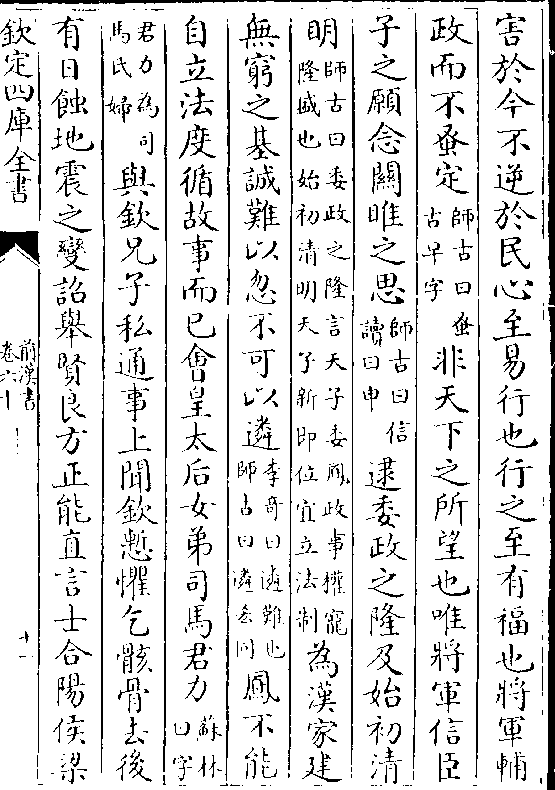 害於今不逆於民心至易行也行之至有福也將軍輔
政而不蚤定師古曰蚤古早字非天下之所望也唯將軍信臣
子之願念關雎之思師古曰信讀曰申逮委政之隆及始初清
明師古曰委政之隆言天子委鳳政事權寵隆盛也始初清明天子新即位宜立法制為漢家建
無窮之基誠難以忽不可以遴李奇曰遴難也師古曰遴吝同鳳不能
自立法度循故事而已會皇太后女弟司馬君力蘇林曰字
君力為司馬氏婦與欽兄子私通事上聞欽慙懼乞骸骨去後
有日蝕地震之變詔舉賢良方正能直言士合陽侯梁
欽定四庫全書
前漢書
卷六十
十一